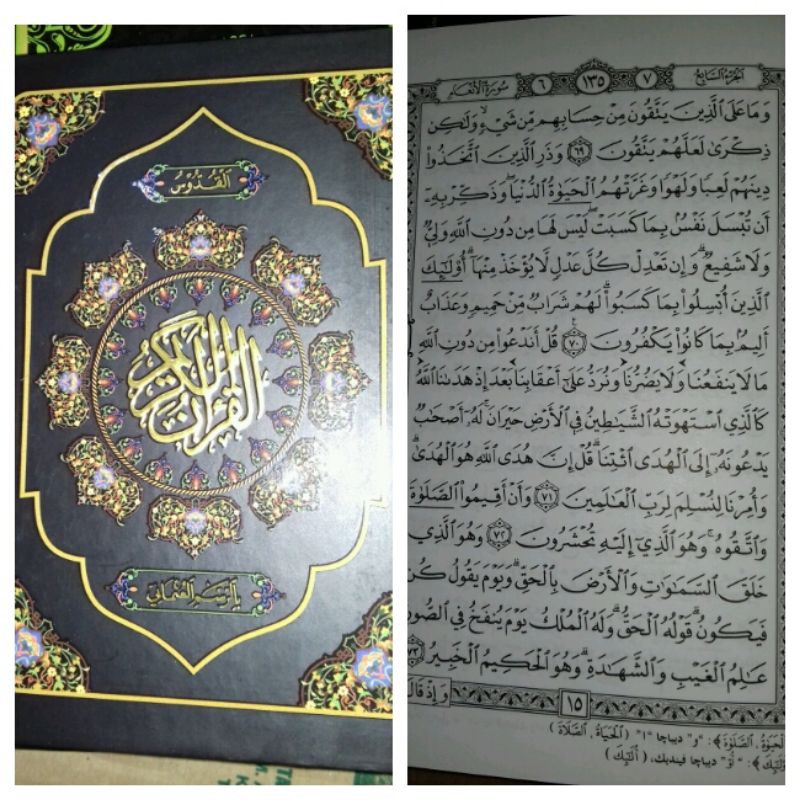 ٱلْقُدُّوسُ
القرآن الكريم
بِالرَّسْمِ الْعُثْمَانِي
اَلْجُزْءُ السَّابِعُ ٧ ١٣٥ ٦ سُورَةُ الْأَنْعَام
وَمَا عَلَى ٱلَّذِينَ يَتَّقُونَ مِنْ حِسَابِهِم مِّن شَيْءٍ وَلَٰكِن
ذِكْرَىٰ لَعَلَّهُمْ يَتَّقُونَ ٦٩ وَذَرِ ٱلَّذِينَ ٱتَّخَذُوا۟
دِينَهُمْ لَعِبًا وَلَهْوًا وَغَرَّتْهُمُ ٱلْحَيَوٰةُ ٱلدُّنْيَا ۚ وَذَكِّرْ بِهِۦٓ
أَن تُبْسَلَ نَفْسٌۢ بِمَا كَسَبَتْ لَيْسَ لَهَا مِن دُونِ ٱللَّهِ وَلِيٌّ
وَلَا شَفِيعٌ وَإِن تَعْدِلْ كُلَّ عَدْلٍ لَّا يُؤْخَذْ مِنْهَآ ۗ أُو۟لَٰٓئِكَ
ٱلَّذِينَ أُبْسِلُوا۟ بِمَا كَسَبُوا۟ ۖ لَهُمْ شَرَابٌ مِّنْ حَمِيمٍ وَعَذَابٌ
أَلِيمٌۢ بِمَا كَانُوا۟ يَكْفُرُونَ ٧٠ قُلْ أَنَدْعُوا۟ مِن دُونِ ٱللَّهِ
مَا لَا يَنفَعُنَا وَلَا يَضُرُّنَا وَنُرَدُّ عَلَىٰٓ أَعْقَابِنَا بَعْدَ إِذْ هَدَىٰنَا ٱللَّهُ
كَٱلَّذِي ٱسْتَهْوَتْهُ ٱلشَّيَٰطِينُ فِي ٱلْأَرْضِ حَيْرَانَ لَهُۥٓ أَصْحَٰبٌ
يَدْعُونَهُۥٓ إِلَى ٱلْهُدَى ٱئْتِنَا ۗ قُلْ إِنَّ هُدَى ٱللَّهِ هُوَ ٱلْهُدَىٰ ۖ
وَأُمِرْنَا لِنُسْلِمَ لِرَبِّ ٱلْعَٰلَمِينَ ٧١ وَأَنْ أَقِيمُوا۟ ٱلصَّلَوٰةَ
وَٱتَّقُوهُ ۚ وَهُوَ ٱلَّذِيٓ إِلَيْهِ تُحْشَرُونَ ٧٢ وَهُوَ ٱلَّذِي
خَلَقَ ٱلسَّمَٰوَٰتِ وَٱلْأَرْضَ بِٱلْحَقِّ ۖ وَيَوْمَ يَقُولُ كُن
فَيَكُونُ ۚ قَوْلُهُ ٱلْحَقُّ ۚ وَلَهُ ٱلْمُلْكُ يَوْمَ يُنفَخُ فِي ٱلصُّورِ
عَٰلِمُ ٱلْغَيْبِ وَٱلشَّهَٰدَةِ ۚ وَهُوَ ٱلْحَكِيمُ ٱلْخَبِيرُ ٧٣
١٥ وَإِذْ قَالَ
لْحَيَوٰةُ، ٱلصَّلَوٰةَ﴾: "و" ديباچا "ا" (اَلْحَيَاةُ، اَلصَّلَاةَ)
ولَٰٓئِكَ﴾: "أُوْ" ديباچا فينديك، (أُلَٰئِكَ)